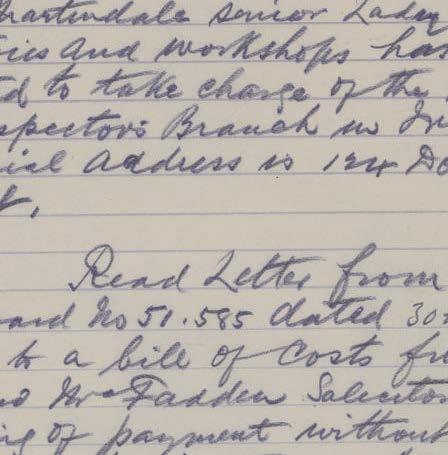 Martindale senior Lady
ries and workshops has
ed to take charge of the
spectors Branch in
ial Address is 124 Do

Read Letter from
oard No 51.585 dated 30
to a bill of Costs fr
Mc Fadden Solicitor
ng of payment without